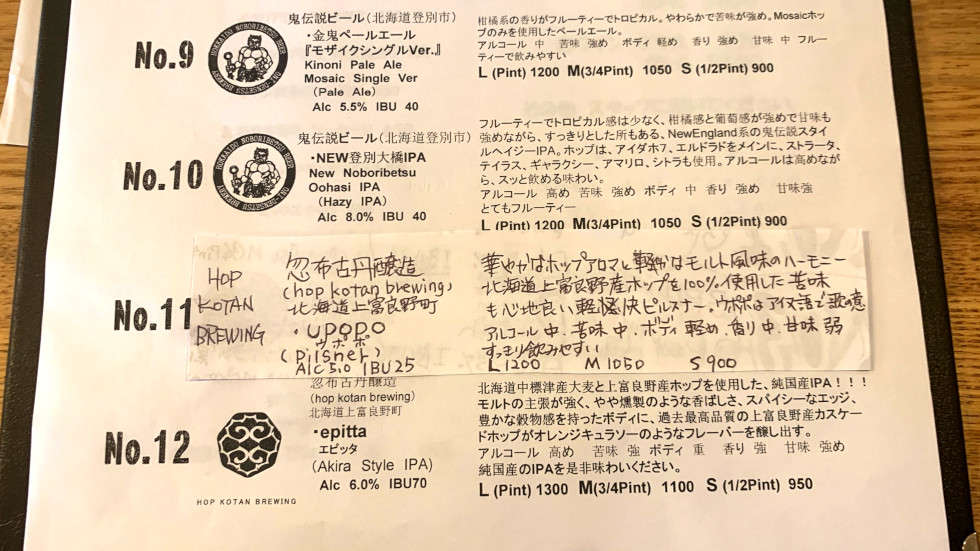 No.9
HOKKAIDO NOBORIBETSU BEER
ONI-DENSETSU BREWERY
鬼伝説ビール(北海道登別市)
・金鬼ペールエール
『モザイクシングルVer.』
Kinoni Pale Ale
Mosaic Single Ver
(Pale Ale)
Alc 5.5% IBU 40
柑橘系の香りがフルーティーでトロピカル。やわらかで苦味が強め。Mosaicホッ
プのみを使用したペールエール。
アルコール 中 苦味 強め ボディ 軽め 香り 強め 甘味 中 フルー
ティーで飲みやすい
L (Pint) 1200 M(3/4Pint) 1050 S (1/2Pint) 900
No.10
HOKKAIDO NOBORIBETSU BEER
ONI-DENSETSU BREWERY
鬼伝説ビール(北海道登別市)
・NEW登別大橋IPA
New Noboribetsu
Oohasi IPA
(Hazy IPA)
Alc 8.0% IBU 40
フルーティーでトロピカル感は少なく、柑橘感と葡萄感が強めで甘味も
強めながら、すっきりとした所もある、NewEngland系の鬼伝説スタイ
ルヘイジーIPA。ホップは、アイダホ7、エルドラドをメインに、ストラータ、
テイラス、ギャラクシー、アマリロ、シトラも使用。アルコールは高めなが
ら、スッと飲める味わい。
アルコール 高め 苦味 強め ボディ 中 香り 強め 甘味強
とてもフルーティー
L (Pint) 1200 M (3/4Pint) 1050 S (1/2Pint) 900
No.11
HOP
KOTAN
BREWING
忽布古丹醸造
(hop kotan brewing)
北海道上富良野町
・upopo
ウポポ
(pilsner)
Alc 5.0 IBU 25
華やかなホップアロマと軽やかなモルト風味のハーモニー
北海道上富良野産ホップを100%使用した苦味
も心地良い軽快ピルスナー。ウポポはアイヌ語で歌の意
アルコール 中 苦味 中 ボディ 軽め 香り 中 甘味 弱
すっきり飲みやすい
L1200 M1050 S900
No.12
HOP KOTAN BREWING
忽布古丹醸造
(hop kotan brewing)
北海道上富良野町
・epitta
エピッタ
(Akira Style IPA)
Alc 6.0% IBU70
北海道中標津産大麦と上富良野産ホップを使用した、純国産IPA!!!
モルトの主張が強く、やや燻製のような香ばしさ、スパイシーなエッジ、
豊かな穀物感を持ったボディに、過去最高品質の上富良野産カスケー
ドホップがオレンジキュラソーのようなフレーバーを醸し出す。
アルコール 高め 苦味 強 ボディ 重 香り 強 甘味 強め
純国産のIPAを是非味わいください。
L (Pint) 1300 M(3/4Pint) 1100 S (1/2Pint) 950